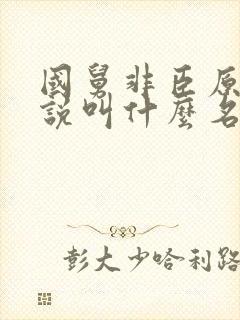 國舅非臣原
說叫什麼名
彭大少哈利路